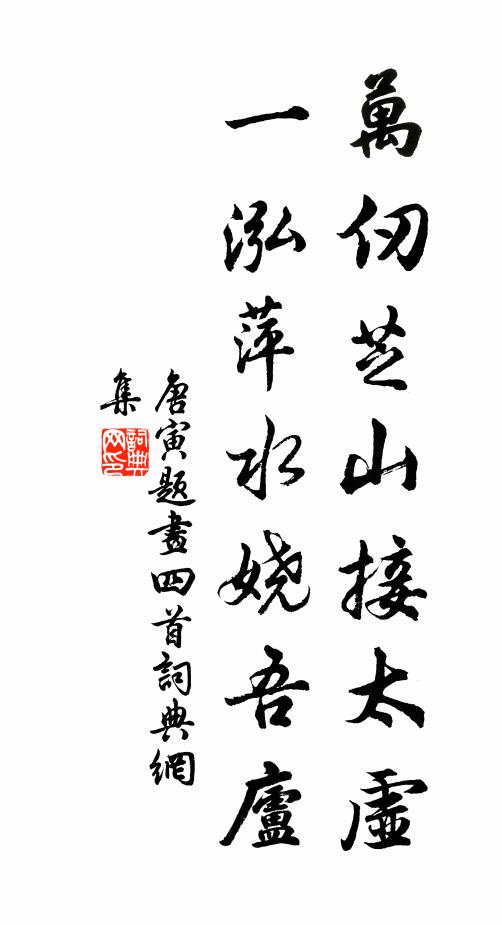 萬仞芝山接太虛
一泓萍水娆吾廬
唐寅題畫四首詞典網
集
詞典
网印